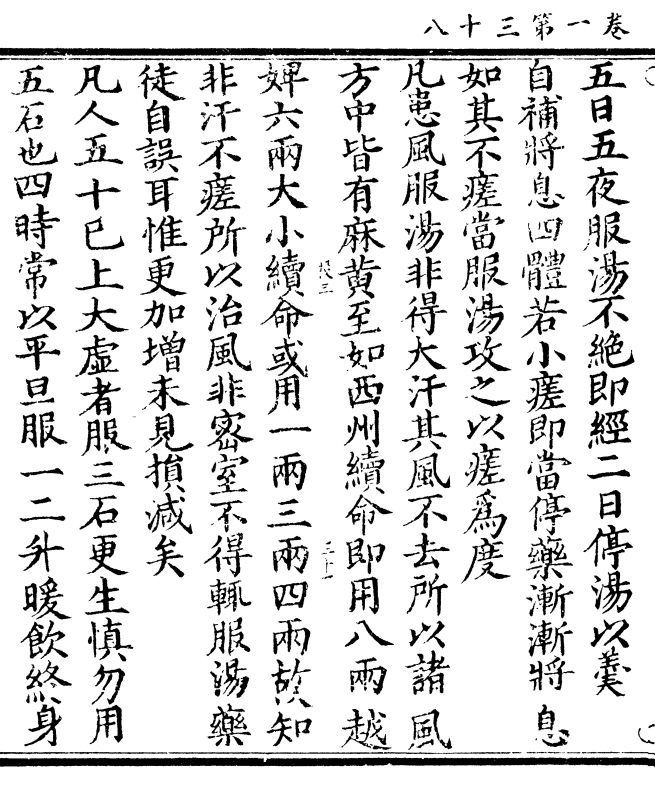 卷一第三十八
五日五夜服湯不絶即經二日停湯以羹
自補將息四體若小瘥即當停藥漸漸將息
如其不瘥當服湯攻之以瘥爲度
凡患風服湯非得大汗其風不去所以諸風
方中皆有麻黄至如西州續命即用八兩越
婢六兩大小續命或用一兩三兩四兩故知
非汗不瘥所以治風非密室不得輒服湯藥
徒自誤耳惟更加增未見損減矣
凡人五十已上大虚者服三石更生慎勿用
五石也四時常以平旦服一二升暖飲終身